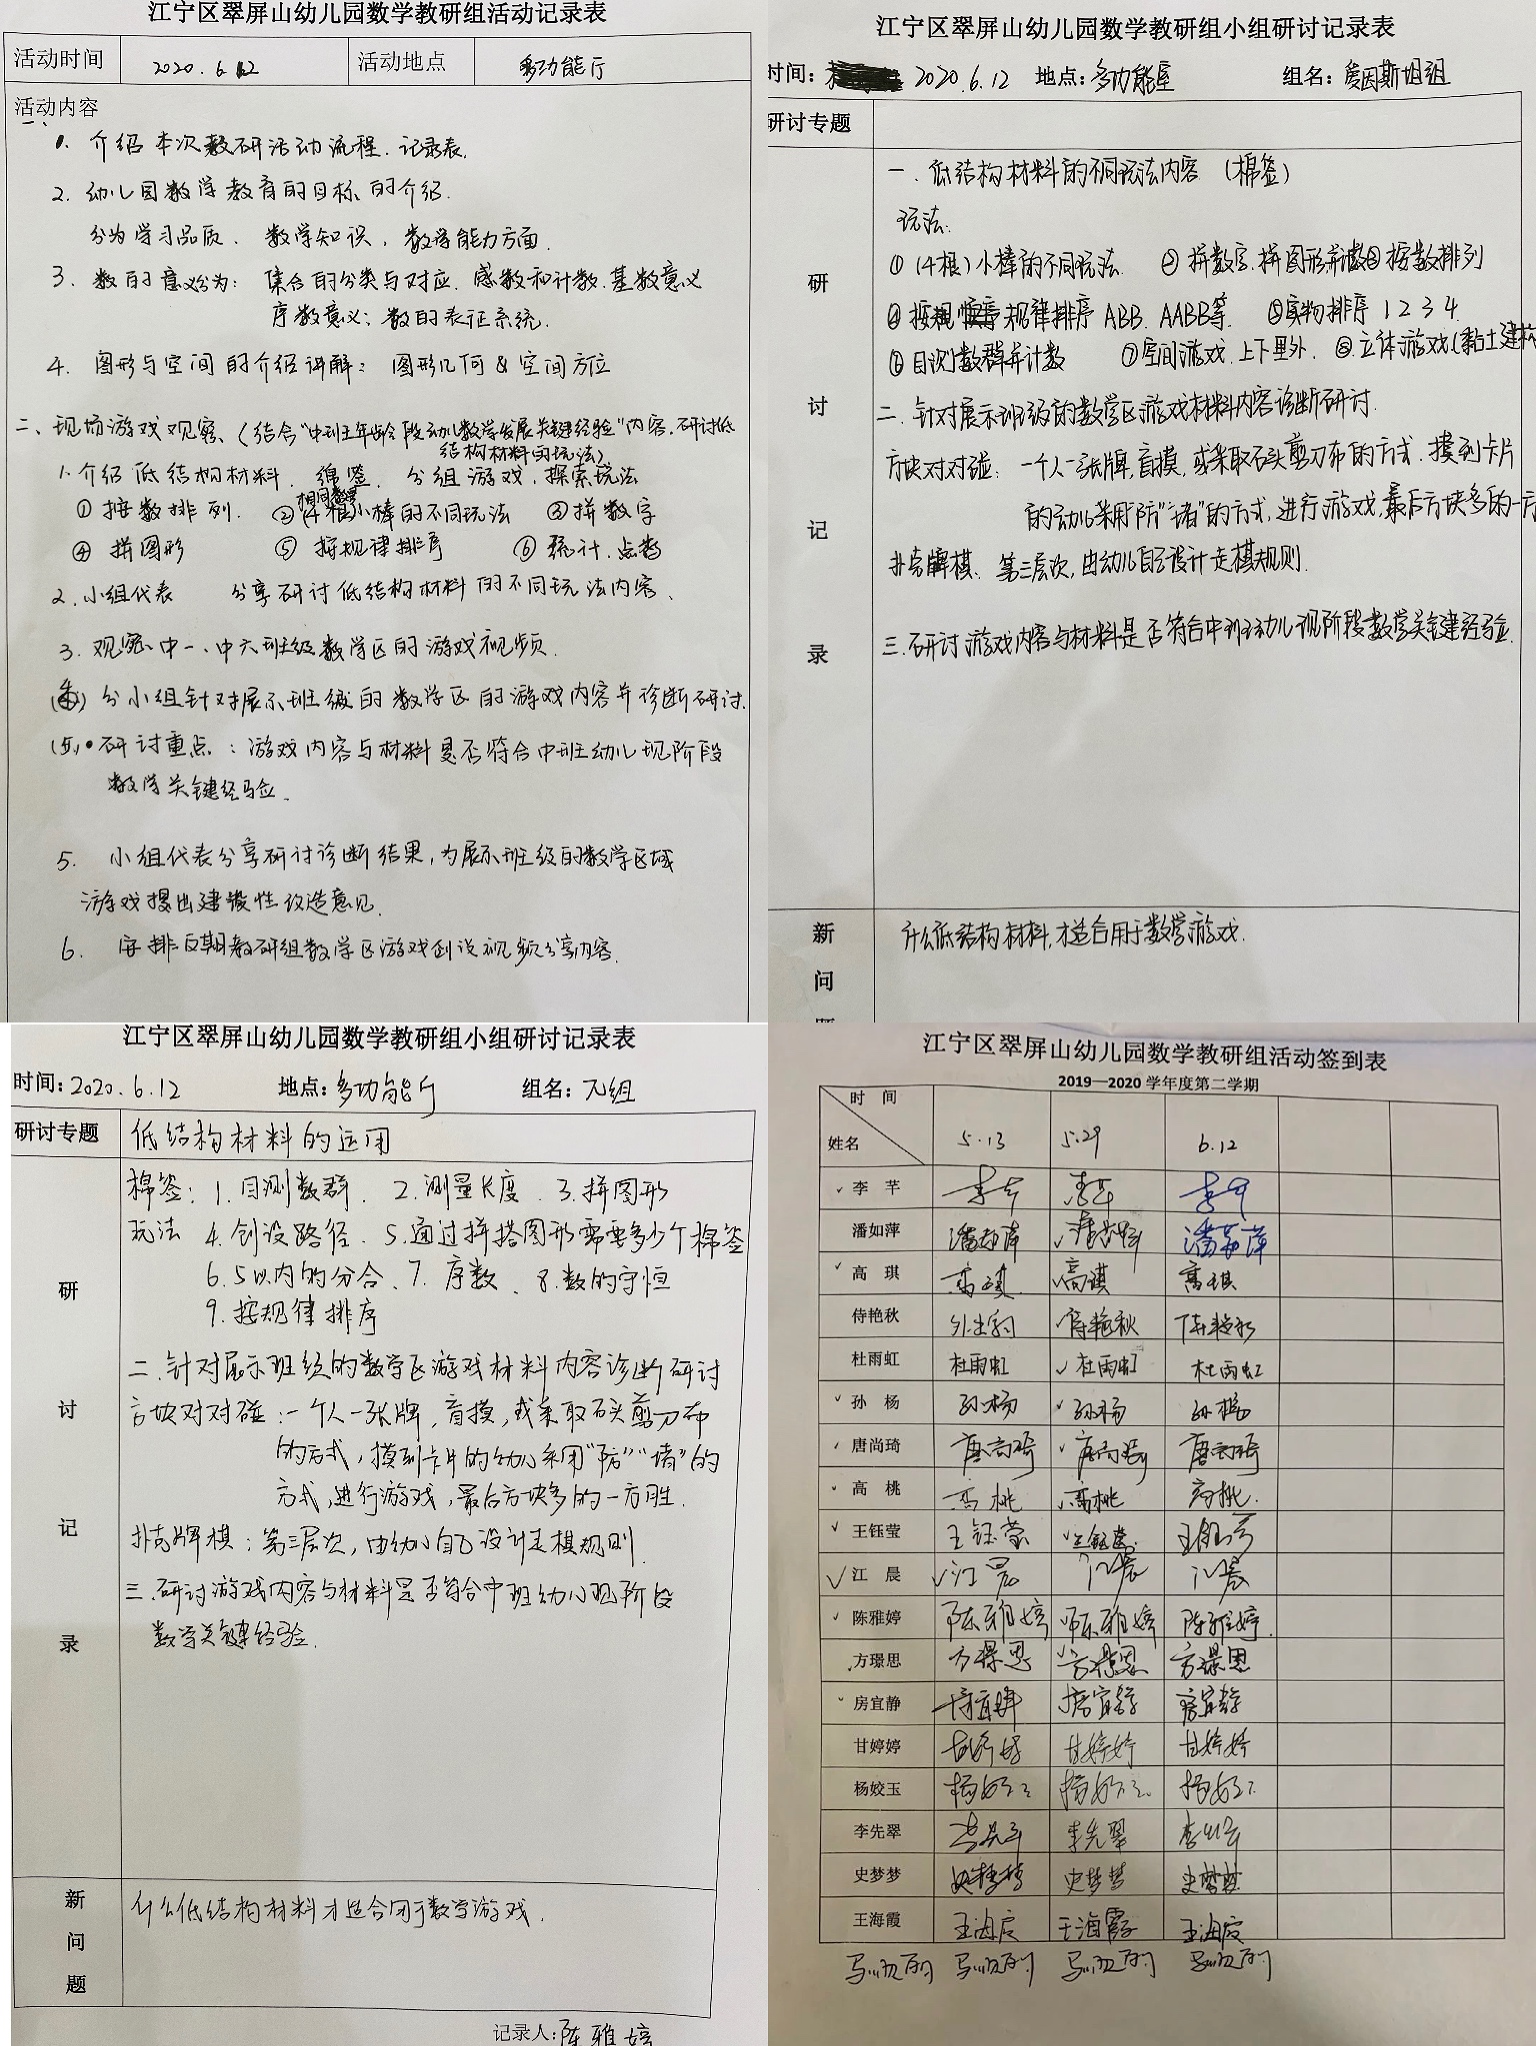 江宁区翠屏山幼儿园数学教研组活动记录表
活动时间 2020.6.12 活动地点 多功能厅
活动内容
一、
1. 介绍本次教研活动流程、记录表.
2. 幼儿园数学教育的目标的介绍.
分为学习品质、数学知识,数学能力方面.
3. 数的意义分为: 集合的分类与对应、感数和计数、基数意义
序数意义、数的表征系统.
4. 图形与空间的介绍讲解: 图形几何 & 空间方位
二、现场游戏观察、(结合“中班年龄段幼儿数学发展关键经验”内容,研讨低
结构材料的玩法)
1. 介绍低结构材料、绵签、分组游戏,探索玩法
相同数量
① 按数排列. ② (4根)小棒的不同玩法 ③ 拼数字
④ 拼图形 ⑤ 按规律排序 ⑥ 统计、点数
2. 小组代表 分享研讨低结构材料的不同玩法内容、
3. 观察中一、中六班级数学区的游戏视频.
分小组针对展示班级的数学区的游戏内容并诊断研讨.
(5). 研讨重点: 游戏内容与材料是否符合中班幼儿现阶段
数学关键经验.
5. 小组代表分享研讨诊断结果,为展示班级的数学区域
游戏提出建设性改造意见.
6. 安排后期教研组数学区游戏创设视频分享内容.
江宁区翠屏山幼儿园数学教研组小组研讨记录表
时间: 2020.6.12 地点: 多功能室 组名: 爱因斯坦组
研讨专题
研讨记录
一. 低结构材料的不同玩法内容 (棉签)
玩法:
① (4根)小棒的不同玩法 ② 拼数字.拼图形并数 ③ 按数排列
④ 按规律排序 ABB. AABB等. ⑤ 实物排序 1 2 3 4.
⑥ 目测数群并计数 ⑦ 空间游戏.上下里外. ⑧. 立体游戏(黏土建构
二. 针对展示班级的数学区游戏材料内容诊断研讨.
方块对对碰: 一个人一张牌,盲摸,或采取石头剪刀布的方式.摸到卡片
的幼儿采用“防”“堵”的方式,进行游戏,最后方块多的一方
扑克牌棋、第三层次,由幼儿自己设计走棋规则.
三. 研讨游戏内容与材料是否符合中班幼儿现阶段数学关键经验.
新问题
什么低结构材料,才适合用于数学游戏.
江宁区翠屏山幼儿园数学教研组小组研讨记录表
时间: 2020.6.12 地点: 多功能厅 组名: 兀组
研讨专题 低结构材料的运用
研讨记录
棉签: 1. 目测数群. 2. 测量长度. 3. 拼图形
玩法 4. 创设路径. 5. 通过拼搭图形需要多少个棉签
6. 5以内的分合、7. 序数. 8. 数的守恒
9. 按规律排序
二. 针对展示班级的数学区游戏材料内容诊断研讨
方块对对碰: 一个人一张牌,盲摸,或采取石头剪刀布
的方式,摸到卡片的幼儿采用“防”“堵”的
方式,进行游戏,最后方块多的一方胜.
扑克牌棋: 第三层次,由幼儿自己设计走棋规则.
三. 研讨游戏内容与材料是否符合中班幼儿现阶段
数学关键经验.
新问题
什么低结构材料才适合用于数学游戏.
记录人: 陈雅婷
江宁区翠屏山幼儿园数学教研组活动签到表
2019—2020 学年度第二学期
时 间
姓名 5.13 5.29 6.12
李 芊 李芊 李芊 李芊
潘如萍 潘如萍 潘如萍 潘如萍
高 琪 高琪 高琪 高琪
侍艳秋 外出 侍艳秋 侍艳秋
杜雨虹 杜雨虹 杜雨虹 杜雨虹
孙 杨 孙杨 孙杨 孙杨
唐尚琦 唐尚琦 唐尚琦 唐尚琦
高 桃 高桃 高桃 高桃.
王钰莹 王钰莹 王钰莹 王钰莹
江 晨 江晨 江晨 江晨
陈雅婷 陈雅婷 陈雅婷 陈雅婷.
方璟思 方璟思 方璟思 方璟思
房宜静 房宜静 房宜静 房宜静
甘婷婷 甘婷婷 甘婷婷 甘婷婷
杨姣玉 杨姣玉 杨姣玉 杨姣玉
李先翠 李先翠 李先翠 李先翠
史梦梦 史梦梦 史梦梦 史梦梦
王海霞 王海霞 王海霞 王海霞